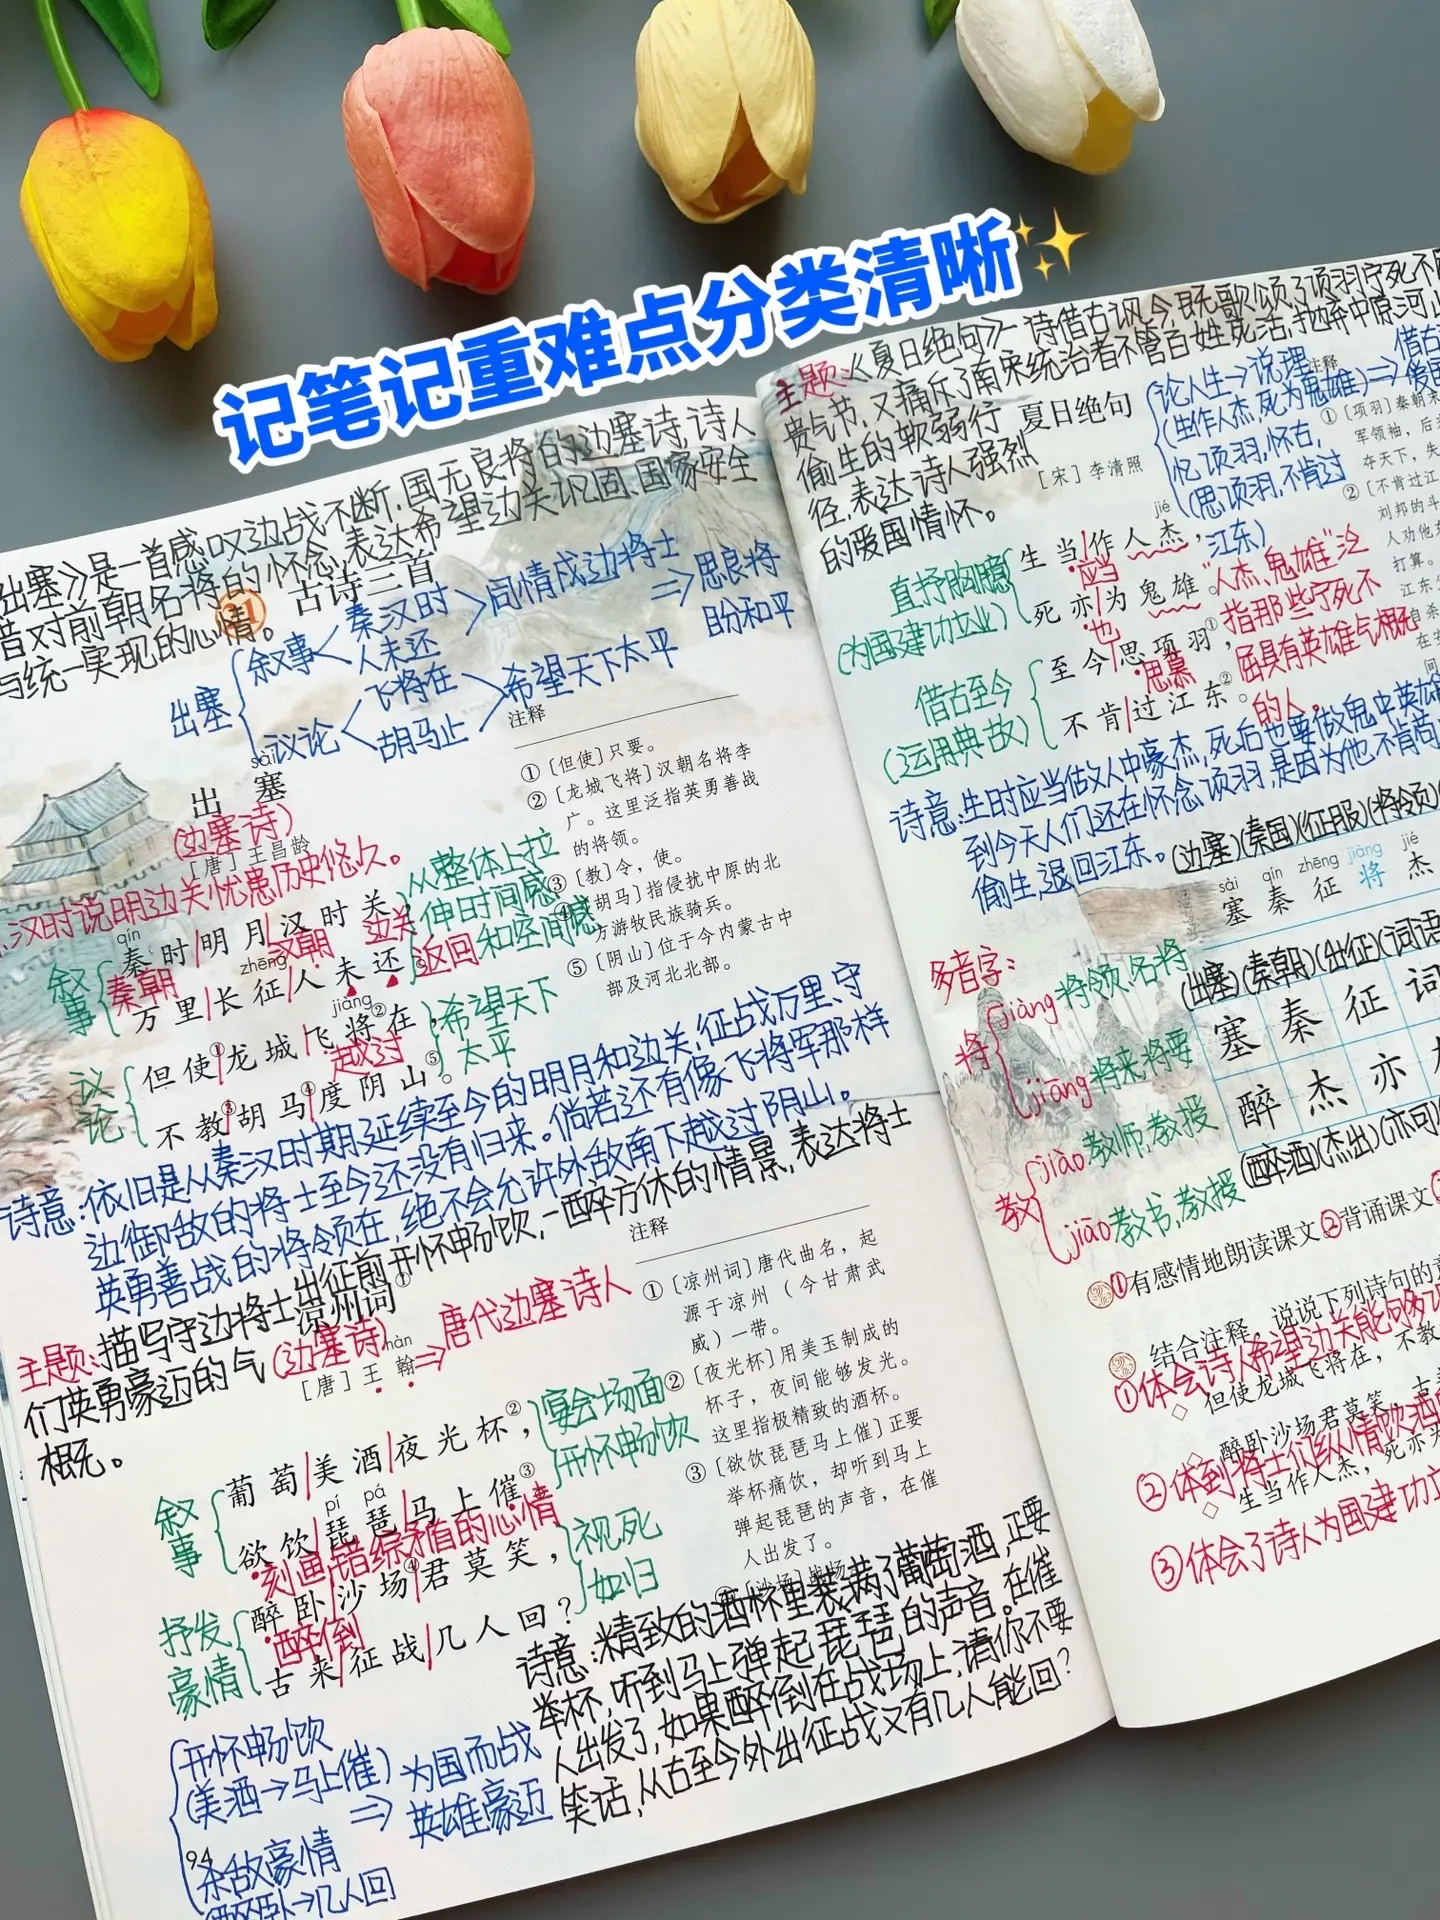 记笔记重难点分类清晰
出塞》是一首感叹边战不断,国无良将的边塞诗,诗人
对前朝名将的怀念,表达希望边关巩固、国家安全
与统一实现的心情。
21 古诗三首
出塞
叙事
秦汉时
人未还
同情戍边将士
思良将
盼和平
议论
飞将在
胡马止
希望天下太平
sài
出塞
(边塞诗)
[唐]王昌龄
汉时说明边关忧患历史悠久。
叙事
qín
秦时明月汉时关,
秦朝
汉朝
边关
zhēng
万里长征人未还。
返回
从整体上拉
伸时间感
和空间感
议论
jiàng
但使①龙城飞将②在,
越过
不教③胡马④度阴山⑤。
希望天下
太平
注释
①[但使]只要。
②[龙城飞将]汉朝名将李
广。这里泛指英勇善战
的将领。
③[教]令,使。
④[胡马]指侵扰中原的北
方游牧民族骑兵。
⑤[阴山]位于今内蒙古中
部及河北北部。
诗意:依旧是从秦汉时期延续至今的明月和边关,征战万里、守
边御敌的将士至今还没有归来。倘若还有像飞将军那样
英勇善战的将领在,绝不会允许外敌南下越过阴山。
主题:描写守边将士出征前开怀畅饮,一醉方休的情景,表达将士
们英勇豪迈的气
概。
凉州词①
(边塞诗)
hàn
[唐]王翰
唐代边塞诗人
叙事
葡萄美酒夜光杯②,
pí pá
欲饮琵琶马上催③。
刻画错综矛盾的心情
宴会场面
开怀畅饮
抒发
豪情
醉卧沙场④君莫笑,
醉倒
古来征战几人回?
视死
如归
注释
①[凉州词]唐代曲名,起
源于凉州(今甘肃武
威)一带。
②[夜光杯]用美玉制成的
杯子,夜间能够发光。
这里指极精致的酒杯。
③[欲饮琵琶马上催]正要
举杯痛饮,却听到马上
弹起琵琶的声音,在催
人出发了。
④[沙场]战场
诗意:精致的酒杯里装满了葡萄酒,正要
举杯,听到马上弹起琵琶的声音。在催
人出发了,如果醉倒在战场上,请你不要
笑话,从古至今外出征战又有几人能回?
开怀畅饮
(美酒→马上催)
为国而战
英雄豪迈
杀敌豪情
醉卧→几人回
94
主题:《夏日绝句》一诗借古讽今,既歌颂了项羽宁死不
贵气节,又痛斥了南宋统治者不管百姓死活,抛弃中原河山
偷生的软弱行
径,表达诗人强烈
的爱国情怀。
夏日绝句
[宋]李清照
论人生→说理
(生作人杰,死为鬼雄)
忆项羽,怀古,
(思项羽,不肯过
江东)
借古
爱国
直抒胸臆
(为国建功立业)
jié
生当作人杰,
应当
死亦为鬼雄。
也
借古至今
(运用典故)
至今思项羽①,
思慕
不肯过江东②。
"人杰、鬼雄"泛
指那些宁死不
屈具有英雄气概
的人。
注释
①[项羽]秦朝末
军领袖,后来
夺天下,失
②[不肯过江
刘邦的斗
人劝他东
打算。
江东
自杀
诗意:生时应当做人中豪杰,死后也要做鬼中英雄
到今天人们还在怀念项羽,是因为他不肯苟
偷生,退回江东。
(边塞)(秦国)(征服)(将领)
sài qín zhēng jiàng jié
塞 秦 征 将 杰
(出塞)(秦朝)(出征)(词语)
塞 秦 征 词
醉 杰 亦
(醉酒)(杰出)(亦可)
多音字:
将
jiàng 将领、名将
jiāng 将来、将要
教
jiào 教师,教授
jiāo 教书,教授
①有感情地朗读课文②背诵课文
结合注释,说说下列诗句的意
①体会诗人希望边关能够多
◇但使龙城飞将在,不教
②体到将士们纵情饮酒
◇醉卧沙场君莫笑,古
◇生当作人杰,死亦为
③体会了诗人为国建功立